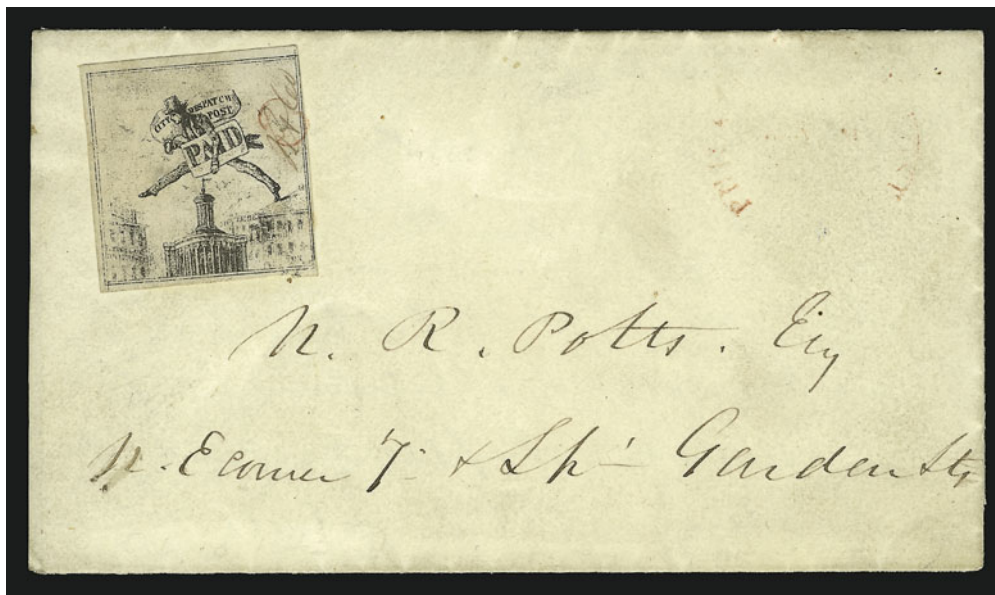 CITY DESPATCH
POST
PAID
N. R. Potts. Esq
N. E corner 7 & Sp' Garden Sts